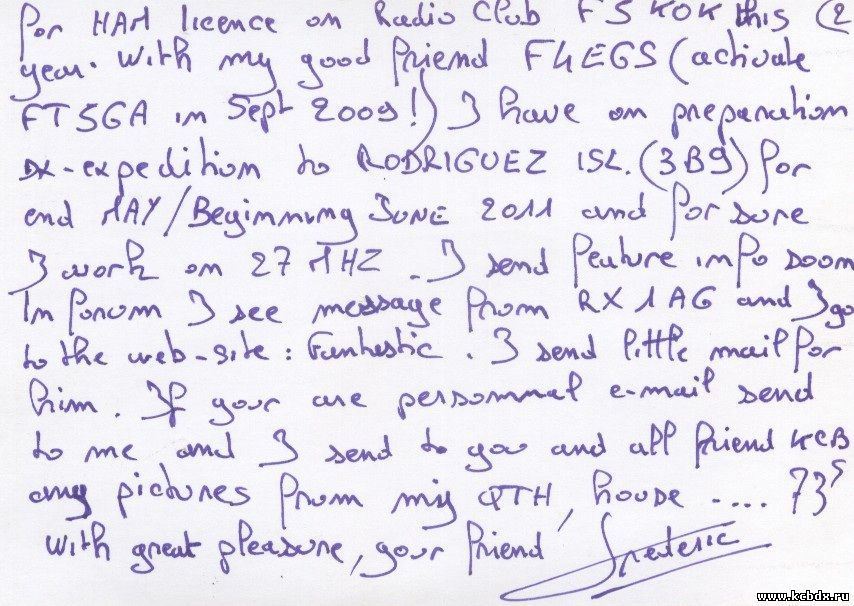 for HAM licence on Radio Club F5KOK this (2
year. With my good friend F4EGS (activate
FT5GA in Sept 2009!) I have on preparation
DX-expedition to RODRIGUEZ ISL. (3B9) for
end MAY/Beginning JUNE 2011 and for sure
I work on 27 MHZ. I send feature info soon
In forum I see message from RX1AG and I go
to the web-site : Fantestic. I send little mail for
him. If your are personnal e-mail send
to me and I send to you and all friend KCB
any pictures from my QTH, house ..... 73s
With great pleasure, your friend Frederic
www.kcbdx.ru